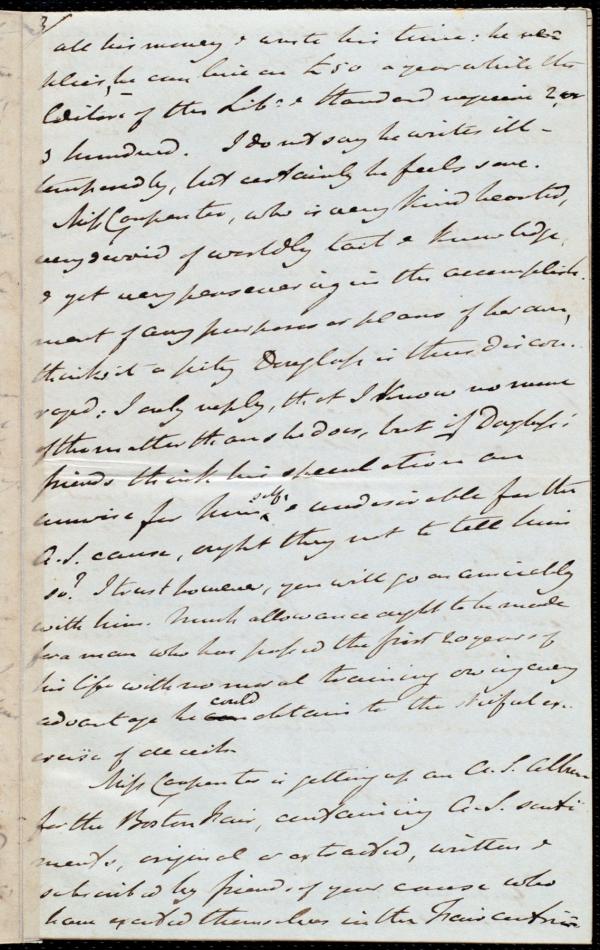 3/
all his money & waste his time: he re-
plies, he can live on £50 a year while the
Editors of the Lib: & Standard require 2, or
3 hundred. I do not say he writes ill-
temperedly, but certainly he feels sore.
Miss Carpenter, who is very kind hearted,
very devoid of worldly tact & knowledge,
& yet very persevering in the accomplish-
ment of any purposes or plans of her own,
thinks it a pity Douglass is thus discou-
raged: I only reply, that I know no more
of the matter than she does, but if Douglass'
friends think his speculation an
unwise for himself, & undesirable for the
A.S. cause, ought they not to tell him
so? I trust however, you will go on amicably
with him. Much allowance ought to be made
for a man who has passed the first 20 years of
his life with no moral training owing every
advantage he could obtain to the skilful ex-
ercise of deceit.
Miss Carpenter is getting up an A.S. Album
for the Boston Fair, containing A.S. senti
ments, original or extracted, written &
subscribed by friends of your cause who
have exerted themselves in the Fair